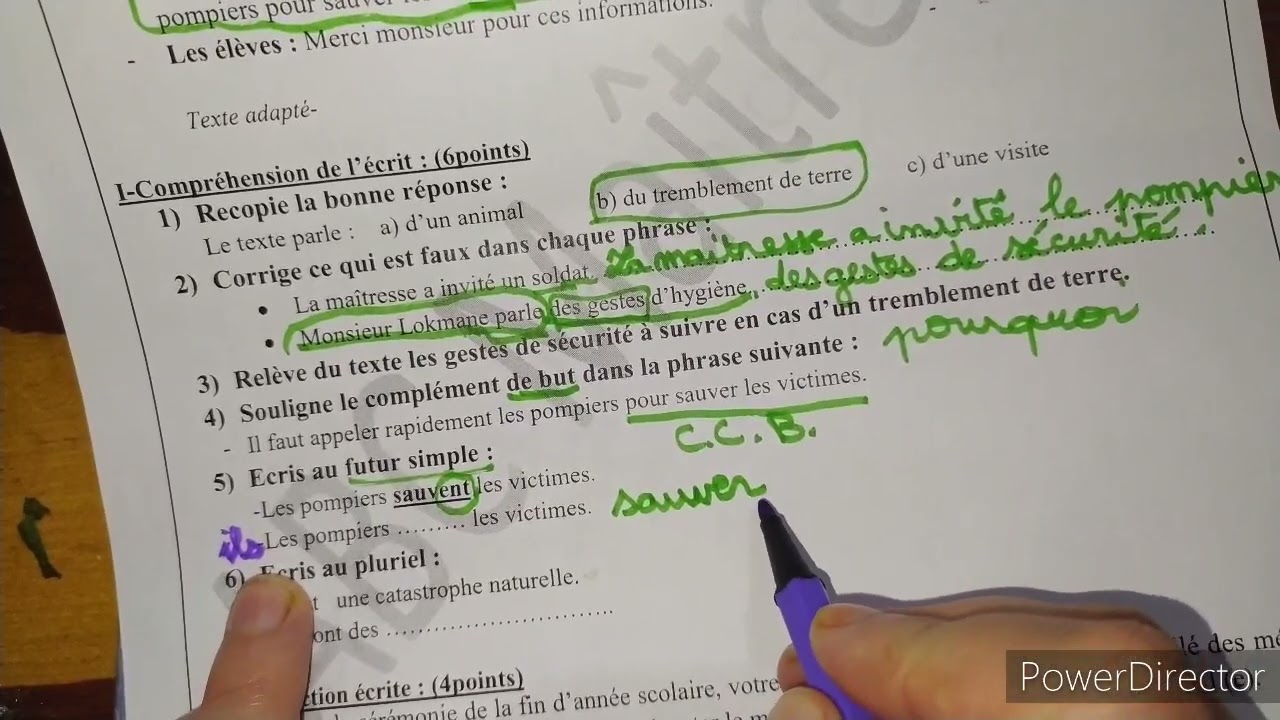 pompiers pour sauver
- Les élèves : Merci monsieur pour ces informations.
Texte adapté-
I-Compréhension de l'écrit : (6points)
1) Recopie la bonne réponse :
Le texte parle : a) d'un animal b) du tremblement de terre c) d'une visite
2) Corrige ce qui est faux dans chaque phrase :
• La maîtresse a invité un soldat. La maîtresse a invité le pompier
• Monsieur Lokmane parle des gestes d'hygiène. des gestes de sécurité
3) Relève du texte les gestes de sécurité à suivre en cas d'un tremblement de terre.
4) Souligne le complément de but dans la phrase suivante : pourquoi
- Il faut appeler rapidement les pompiers pour sauver les victimes.
C.C.B.
5) Ecris au futur simple :
-Les pompiers sauvent les victimes.
ils -Les pompiers ......... les victimes. sauver
6) Ecris au pluriel :
t une catastrophe naturelle.
ont des ..............................
ction écrite : (4points)
cérémonie de la fin d'année scolaire, votre
lé des mé
PowerDirector
ABC Maître